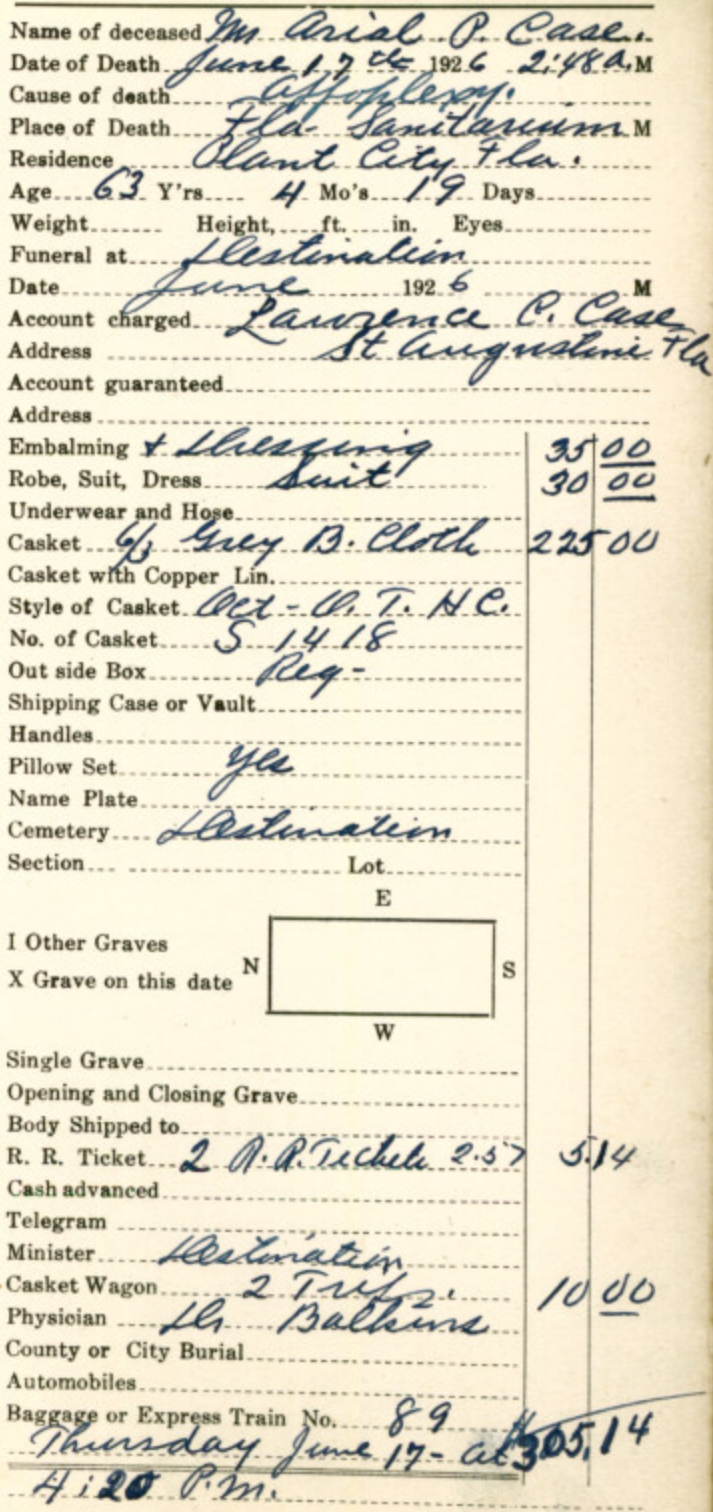 Name of deceased Mr Arial P. Case.
Date of Death June 17th 1926 2:48 A.M
Cause of death Appoplexy.
Place of Death Fla- Sanitarium M
Residence Plant City Fla.
Age 63 Y'rs 4 Mo's 19 Days
Weight Height, ft. in. Eyes
Funeral at Destination
Date June 1926 M
Account charged Lawrence C. Case
Address St Augustine Fla
Account guaranteed
Address
Embalming + Dressing 35 00
Robe, Suit, Dress Suit 30 00
Underwear and Hose
Casket 6/3 Grey B. Cloth 225 00
Casket with Copper Lin.
Style of Casket Oct - O. T. H C.
No. of Casket S 1418
Out side Box Reg-
Shipping Case or Vault
Handles
Pillow Set Yes
Name Plate
Cemetery Destination
Section Lot
E
I Other Graves
N S
X Grave on this date
W
Single Grave
Opening and Closing Grave
Body Shipped to
R. R. Ticket 2 R.R. Tickets 2.57 5.14
Cash advanced
Telegram
Minister Destination
Casket Wagon 2 Trips. 10 00
Physician Dr Balkins
County or City Burial
Automobiles
Baggage or Express Train No. 89
Thursday June 17- at $305.14
4:20 P.M.